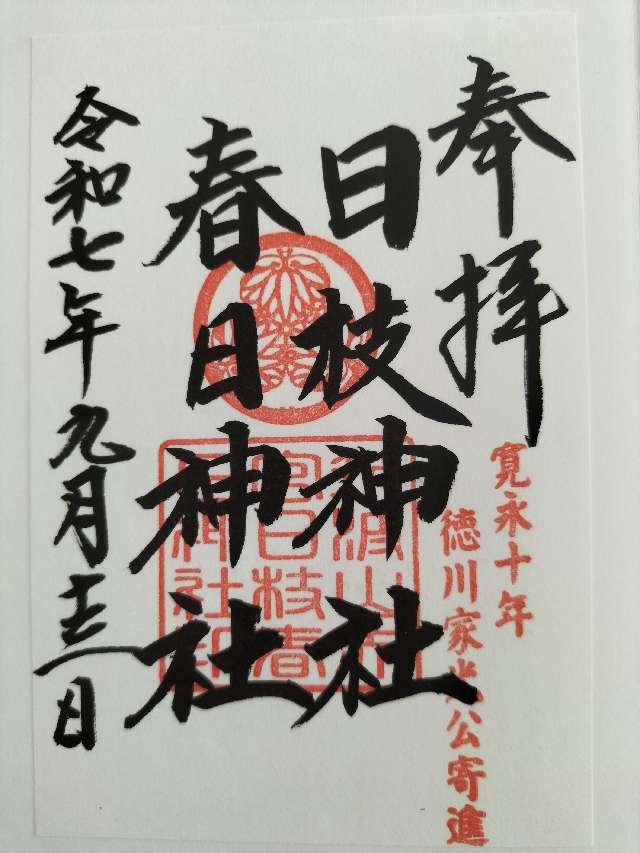 奉拝
寛永十年
徳川家光公寄進
日枝神社
春日神社
令和七年九月十三日